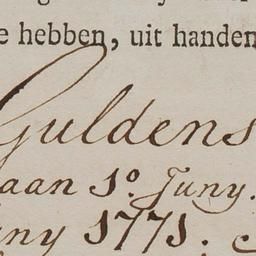 e hebben, uit handen
Guldens
aan 1º. Juny.
ny 1771.